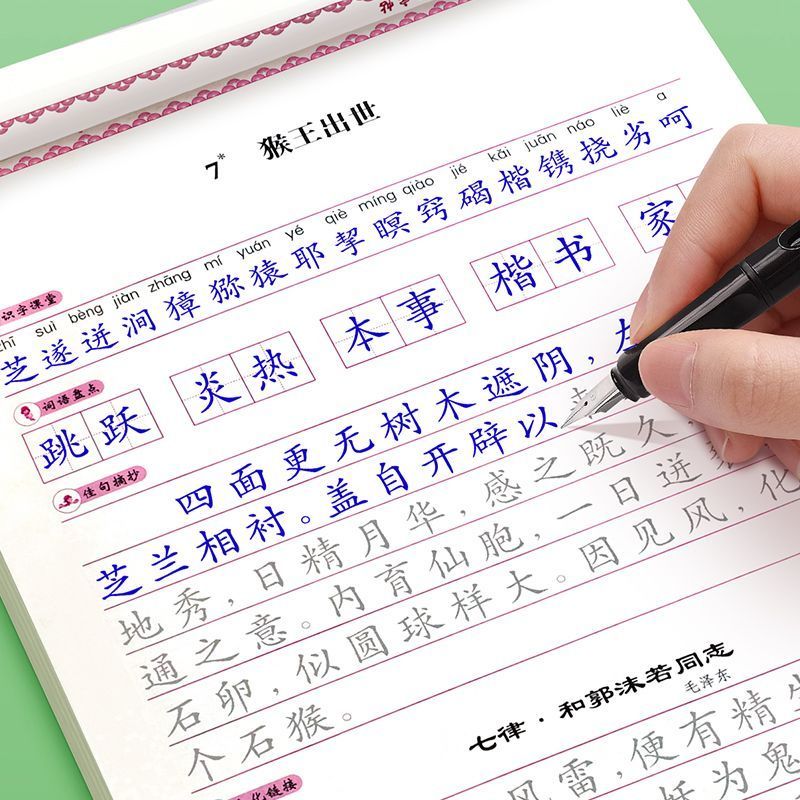 7* 猴王出世
识字课堂
zhī suì bèng jiàn zhāng mí yuán yé qiè míng qiào jié kǎi juān náo liè a
芝遂迸涧獐猕猿耶挈瞑窍碣楷镌挠劣呵
词语盘点
跳跃 炎热 本事 楷书 家
佳句摘抄
四面更无树木遮阴，左
芝兰相衬。盖自开辟以
地秀，日精月华，感之既久，
通之意。内育仙胞，一日迸
石卵，似圆球样大。因见风，化
个石猴。
七律·和郭沫若同志
毛泽东
风雷，便有精生
妖为鬼
化链接